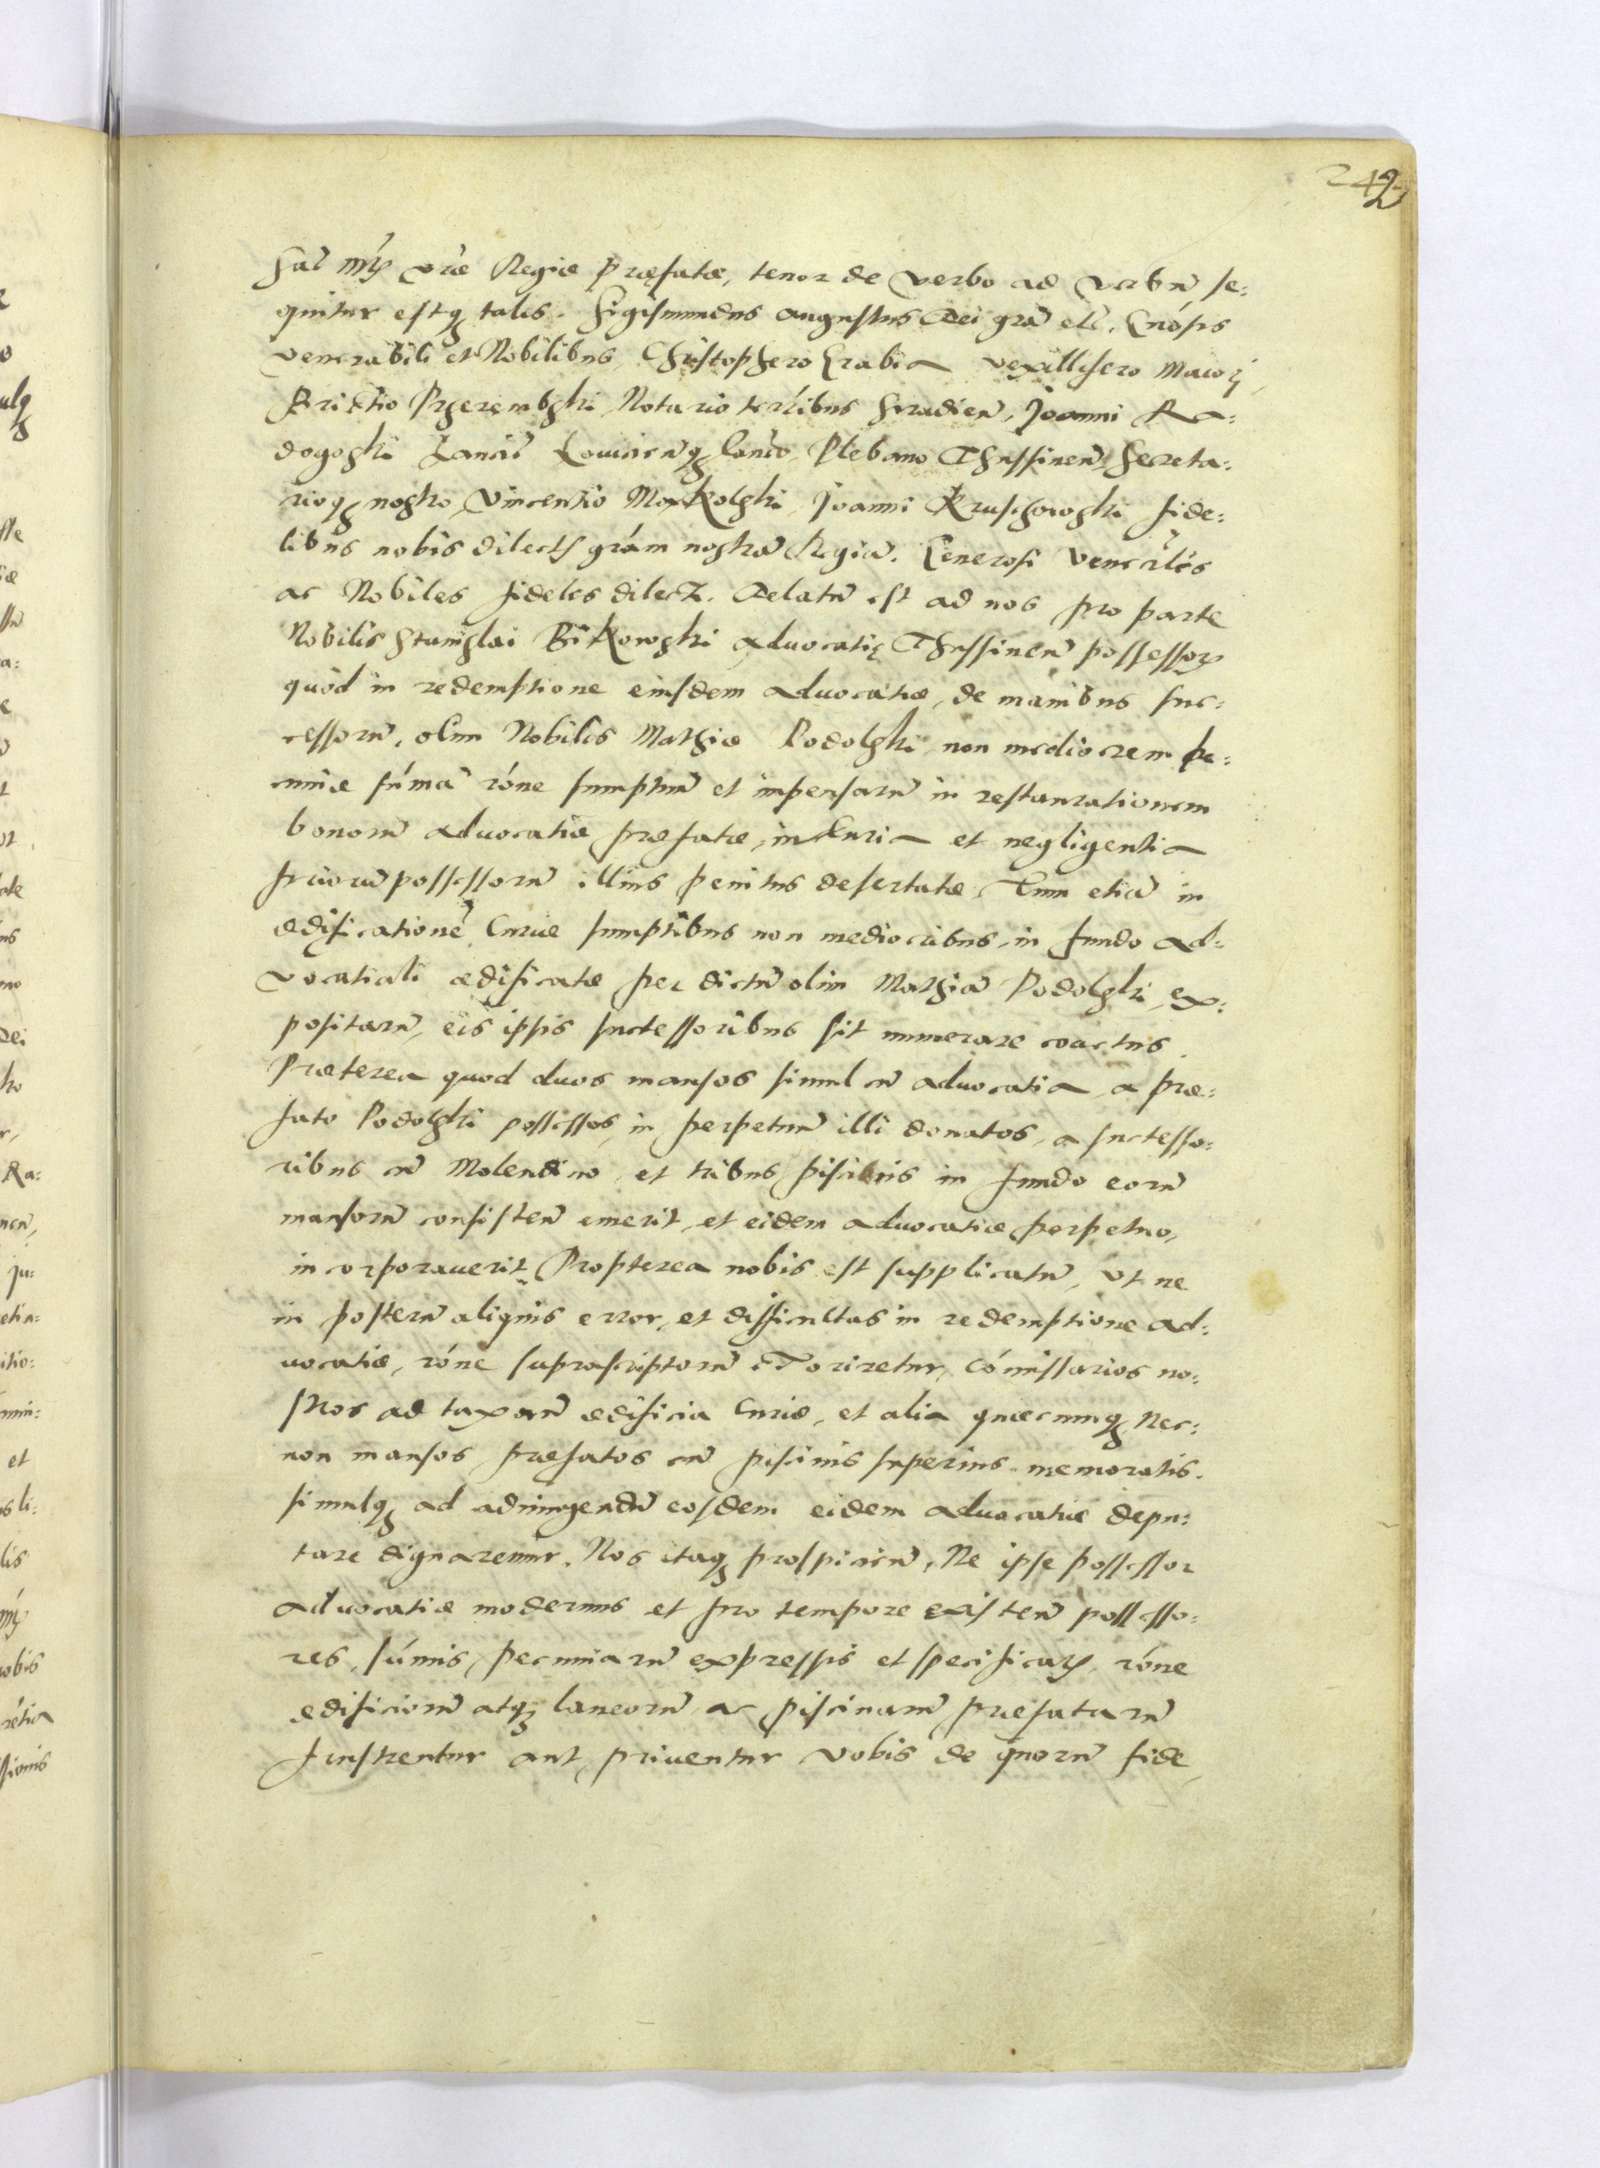 242
Sac̃ Mtis v̄rae Regiae praefatae, tenor de verbo ad verbũ se:
quitur estq₃ talis. Sigismundus augustus Dei grã etc̃. Gnósis
venerabili et Nobilibus, Christophero Grabia vexillifero Maiori,
Prictio Przerembski Notario terr̃ibus Siradień, Joanni Ra:
dogoski Lancić Louiciensq₃ Canco, Plebano Thussineñ Secreta:
rioq₃ nostro, Vincentio Moxkolski, Joanni Kruschowski fide:
libus nobis dilectis grám nostrã Regiã. Generosi Venerãles
ac Nobiles fideles dilecti. Delatũ est ad nos pro parte
Nobilis Stanislai Bikowski aduocatię Thussineñ possessoris
quòd in redemptione eiusdem aduocatiae, de manibus suc:
cessorũ, olim Nobilis Mathiae Podolski non mediocrem pe:
cuniae súmã róne sumptuũ et impensarũ in restaurationem
bonorũ aduocatiae praefatae, incuria et negligentia
priorũ possessorũ illius penitus desertatae, Tum etiã in
aedificationẽ Curiae sumptibus non mediocribus in fundo ad:
vocaticali aedificatae per dictũ olim Mathiã Podolski ex:
positarũ, eis ipsis successoribus sit numerare coactus.
Praeterea quod duos mansos simul cũ aduocatia a prae:
fato Podolski possessos in perpetuũ illi donatos, a successo:
ribus cũ Molendino, et tribus piscinis in fundo eorũ
mansorũ consisteñ emerit, et eidem aduocatiae perpetuo,
incorporauerit, Propterea nobis est supplicatũ, vt ne
in posterũ aliquis error, et difficultas in redemptione ad:
uocatiae, róne suprascriptorũ exoriretur, Cómissarios no:
stros ad taxanũ aedificia Curiae, et alia quaecunq₃ Nec:
non mansos praefatos cũ piscinis superius memoratis.
simulq₃ ad adiungendũ eosdem eidem aduocatiae depu:
tare dignaremur. Nos itaq₃ prospicieñ, Ne ipse possessor
aduocatiae modernus et pro tempore existeñ possesso:
res, súmis pecuniarũ expressis et specificatis, róne
edificiorũ atq₃ laneorũ ac piscinarũ praefatarũ
frustrentur aut priuentur vobis de quorũ fide,